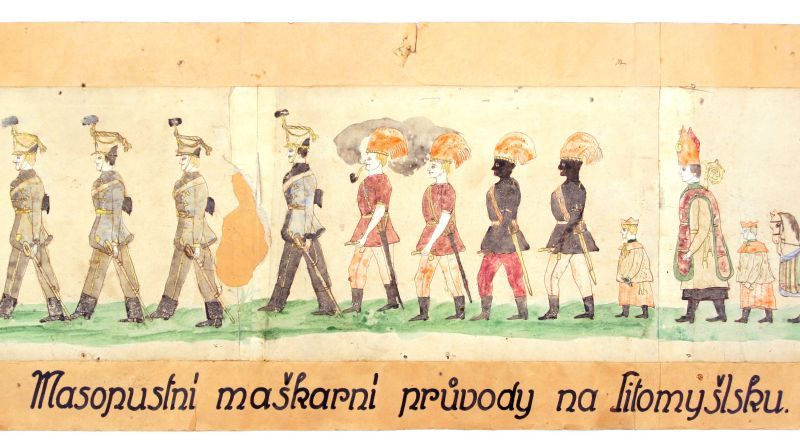 Masopustní maškarní průvody na Litomyšlsku.